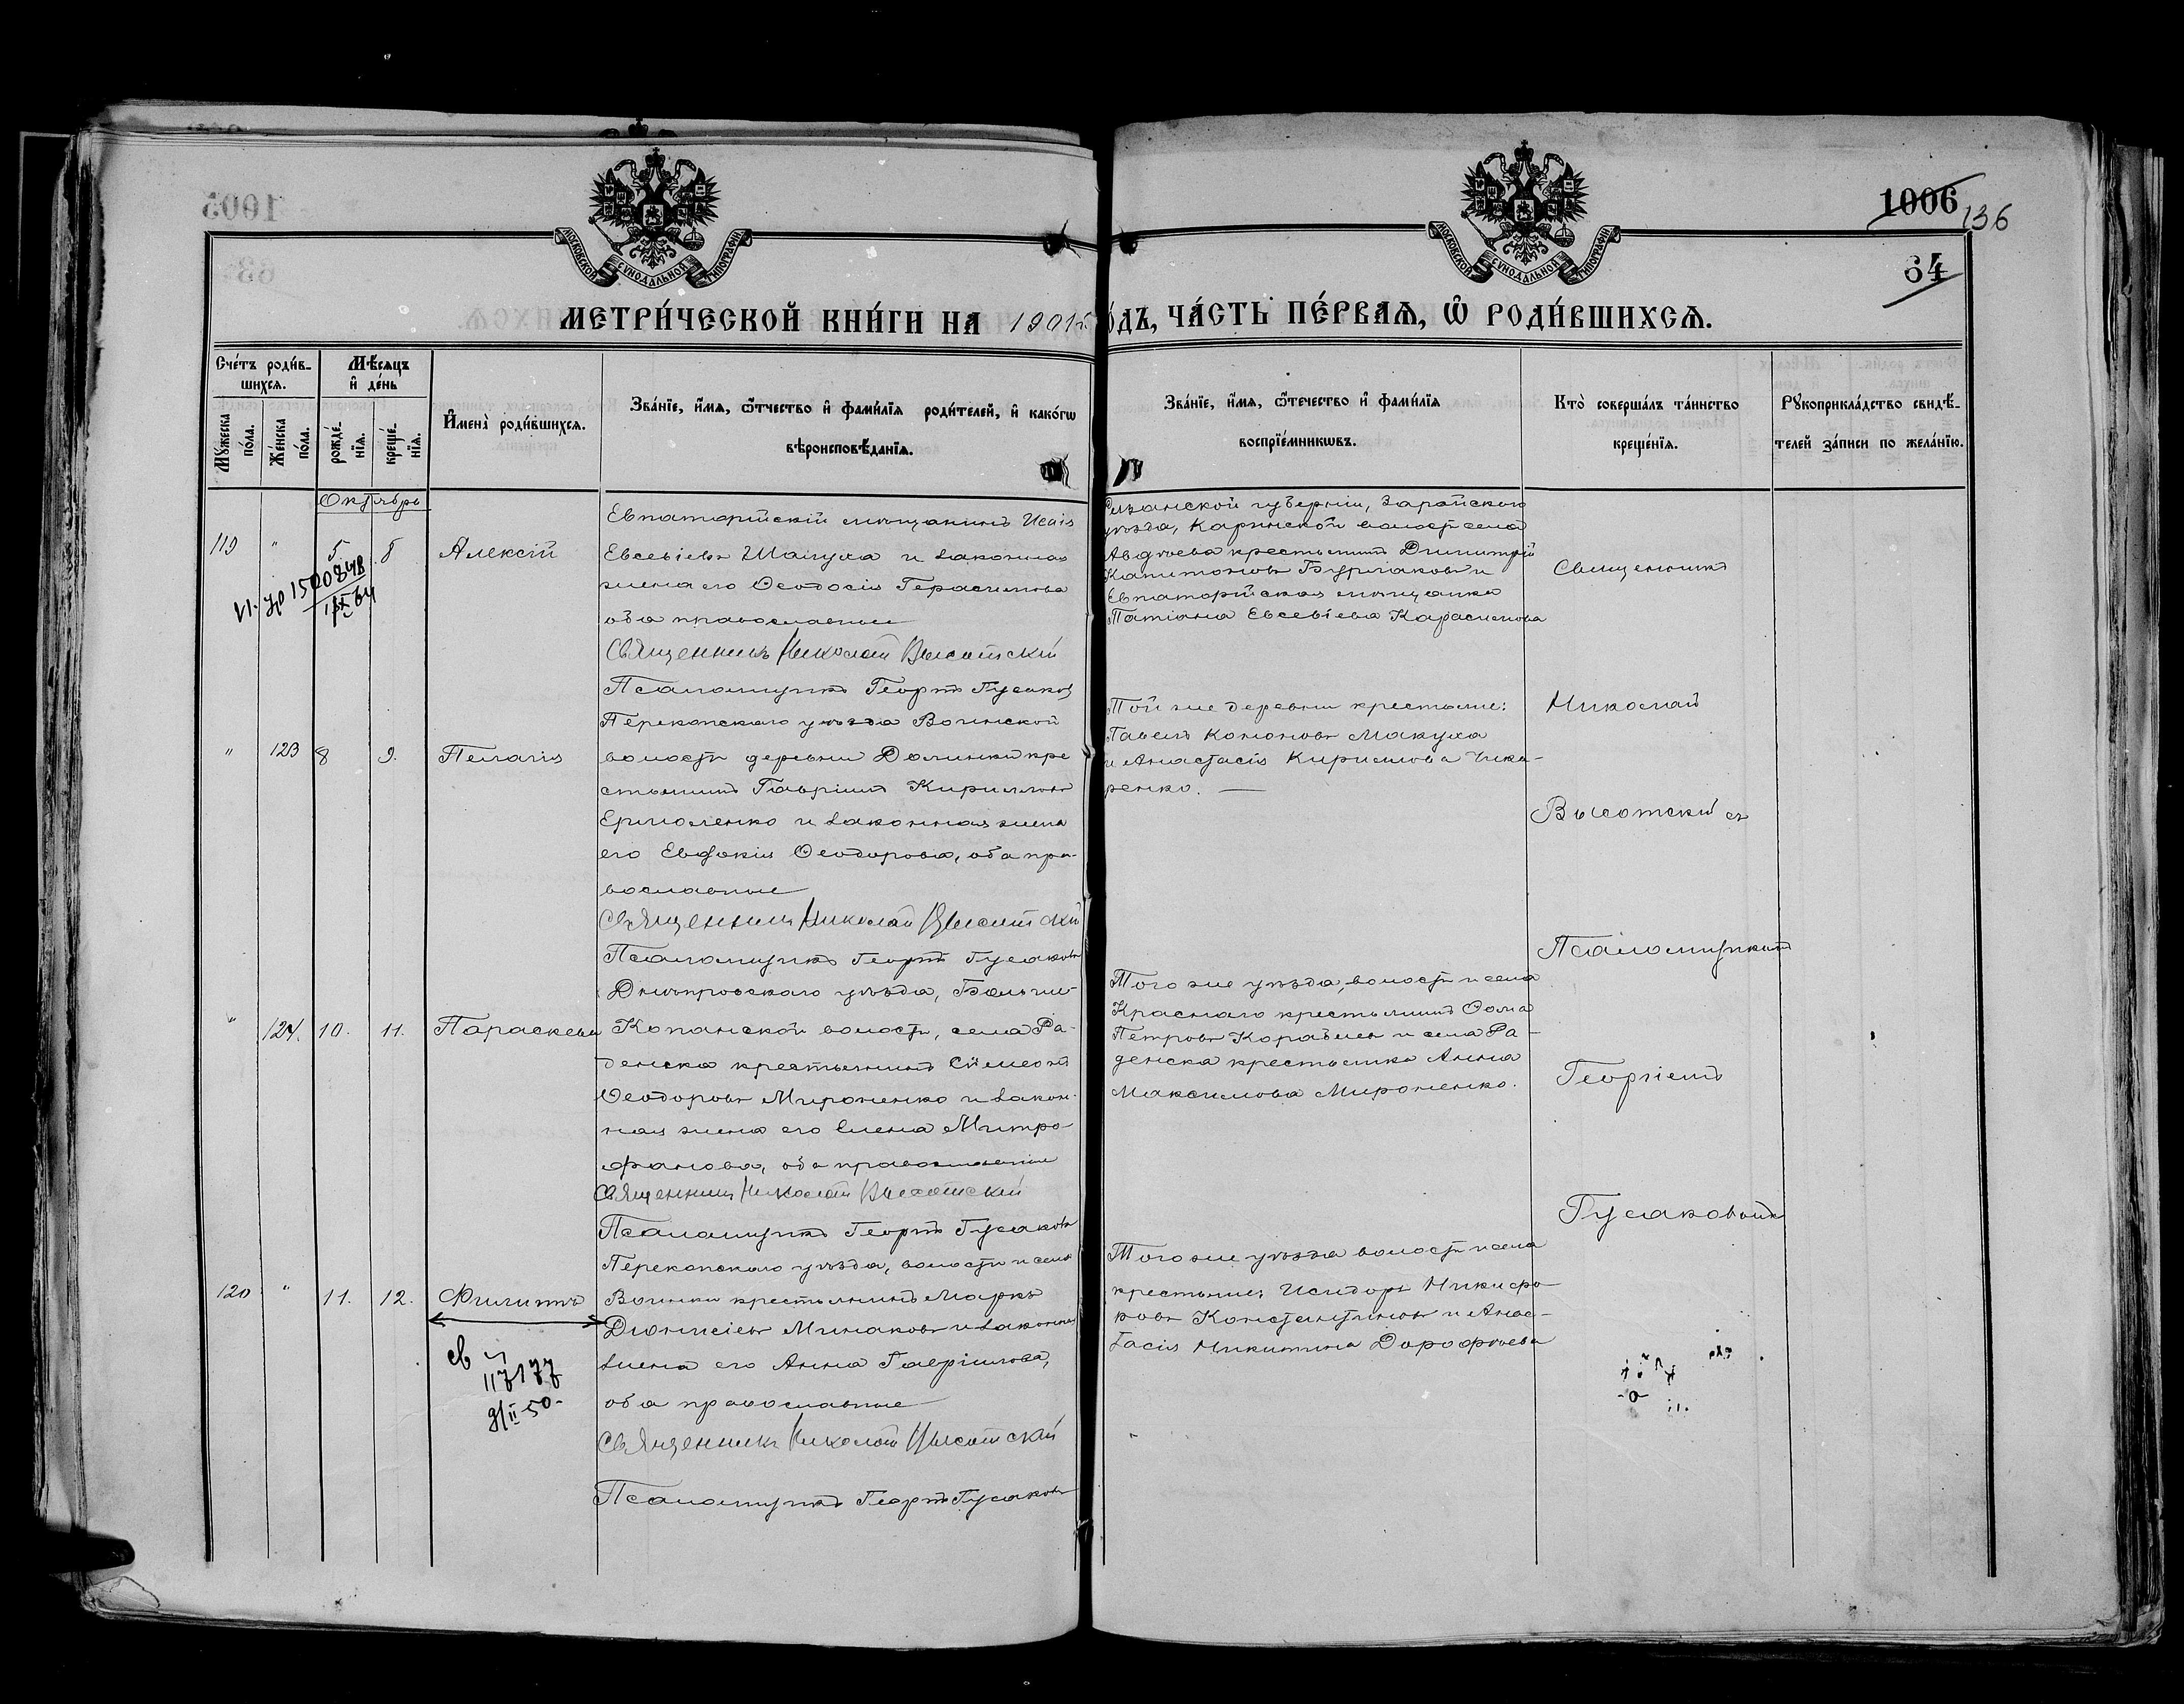 1006
136
64
МОСКОВСКОЙ СѴНОДАЛЬНОЙ ТИПОГРАФІИ
МОСКОВСКОЙ СѴНОДАЛЬНОЙ ТИПОГРАФІИ
МЕТРИ́ЧЕСКОЙ КНИ́ГИ НА 1901 г. ГО́ДЪ, ЧА́СТЬ ПЕ́РВАѦ, Ѡ҆ РОДИ́ВШИХСѦ.
Сче́тъ роди́в-
шихсѧ.
Мѣ́сѧцъ
и҆ де́нь
Мꙋ́жеска
по́ла.
Же́нска
по́ла.
рожде́-
нїѧ.
креще́-
нїѧ.
И҆мена̀ роди́вшихсѧ.
Зва́нїе, и҆́мѧ, ѻ҆́тчество и҆ фами́лїѧ роди́телей, и҆ како́гѡ
вѣроисповѣ́данїѧ.
Зва́нїе, и҆́мѧ, ѻ҆́течество и҆ фами́лїѧ
воспрїе́мникѡвъ.
Кто̀ соверша́лъ та́инство
креще́нїѧ.
Рꙋкоприкла́дство свидѣ́-
телей за́писи по жела́нїю.
Октябрь
119 " 5 8 Алексій
1500848
Евпаторійскій мѣщанинъ Исаія
Евсевіевъ Шапуха и законная
жена его Ѳеодосія Герасимова
оба православные
Священникъ Николай Высотскій
Псаломщикъ Георгій Гусаковъ
Рязанской губерніи, Зарайскаго
уѣзда, Каринской волости села
Авдѣева крестьянинъ Димитрій
Капитоновъ Бурлаковъ и
Евпаторійская мѣщанка
Татіана Евсевіева Карасикова
Священникъ
" 123 8 9. Пелагія
Перекопскаго уѣзда Воинской
волости деревни Долинки кре
стьянинъ Гавріилъ Кирилловъ
Ермоленко и законная жена
его Евдокія Ѳеодорова, оба пра-
вославные
Священникъ Николай Высотскій
Псаломщикъ Георгій Гусаковъ
Той же деревни крестьяне:
Павелъ Кононовъ Макуха
и Анастасія Кириллова Чика-
ренко. —
Николай
Высотскій съ
Псаломщикомъ
" 124. 10. 11. Параскева
Днѣпровскаго уѣзда, Больше-
Копанской волости, села Ра-
денска крестьянинъ Симеонъ
Ѳеодоровъ Мироненко и закон-
ная жена его Елена Митро
фанова, оба православные
Священникъ Николай Высотскій
Псаломщикъ Георгій Гусаковъ
Того же уѣзда, волости и села
Краснаго крестьянинъ Ѳома
Петровъ Кораблевъ и села Ра-
денска крестьянка Анна
Максимова Мироненко.
Георгіемъ
Гусаковымъ
120 " 11. 12. Филиппъ
св
117177
9/II 50-
Перекопскаго уѣзда, волости и села
Воинки крестьянинъ Маркъ
Діонисіевъ Минаковъ и законная
жена его Анна Гавріилова,
оба православные
Священникъ Николай Высотскій
Псаломщикъ Георгій Гусаковъ
Того же уѣзда волости и села
крестьяне: Исидоръ Никифо-
ровъ Константиновъ и Анас-
тасія Никитина Дорофѣева